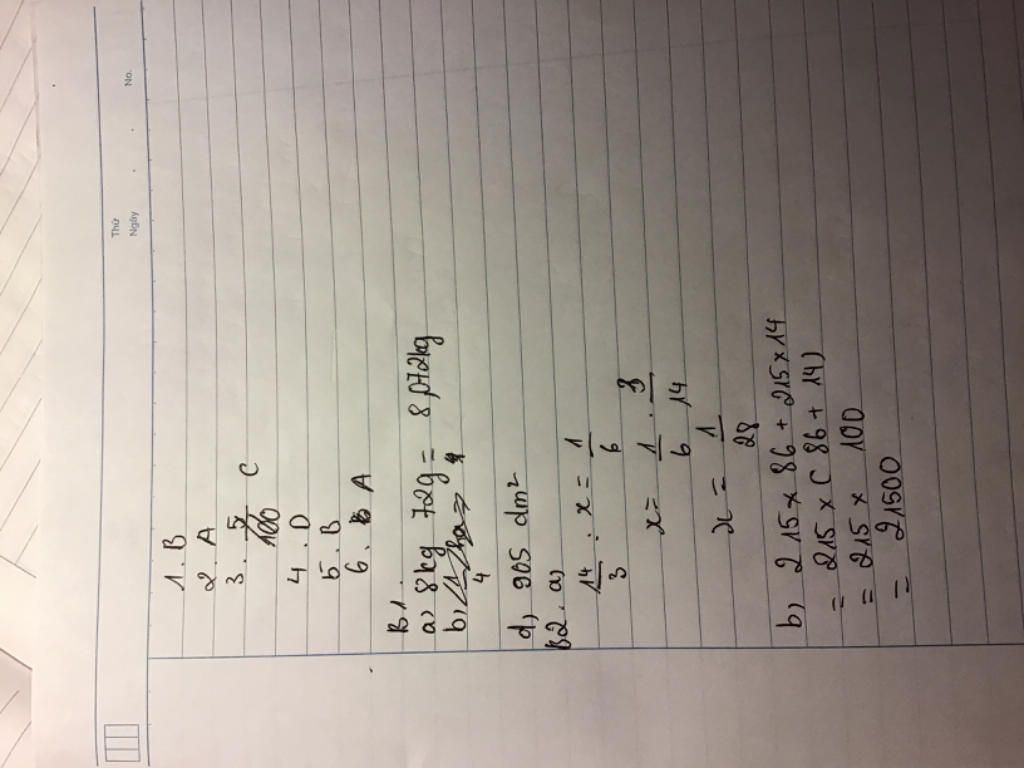 Thứ
Ngày
No.
1. B
2. A
3. C
4. D
5. B
6. A
B1.
a) 8kg 72g =
b)
4
d) 905 dm²
B2. a)
14/3 : x = 1/6
x = 1/6 . 3/14
x = 1/28
b) 215 x 86 + 215 x 14
= 215 x ( 86 + 14)
= 215 x 100
= 21500